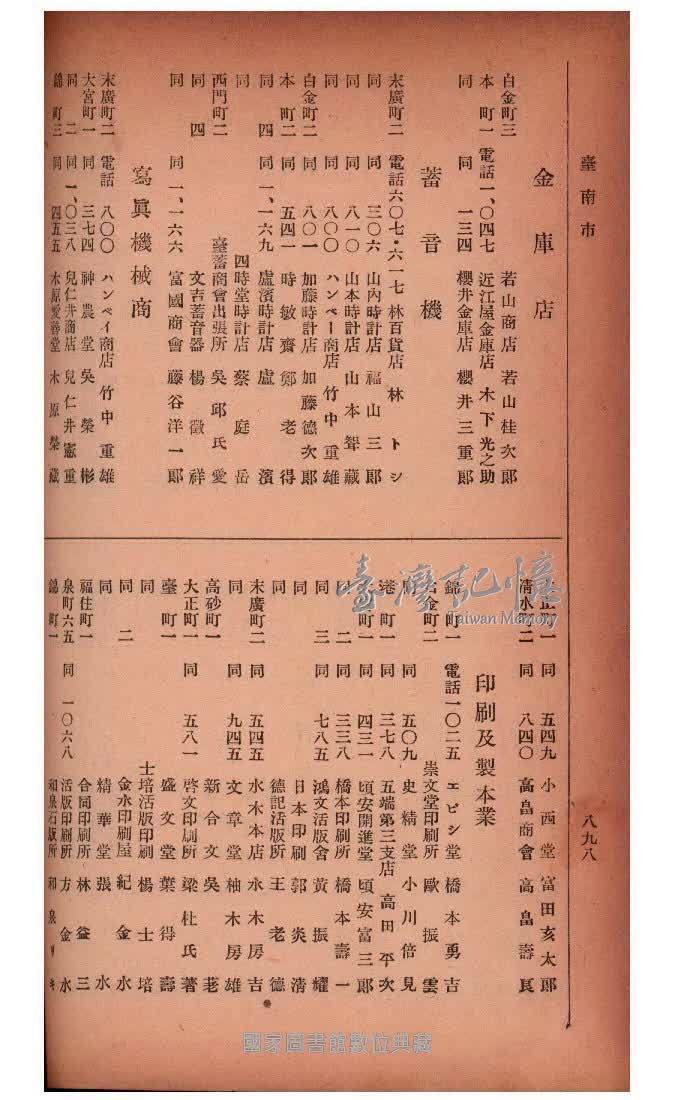 臺南市
八九八
金庫店
白金町三 若山商店 若山桂次郎
本町一 電話一、〇四七 近江屋金庫店 木下光之助
同 同 一三四 櫻井金庫店 櫻井三重郎
蓄音機
末廣町二 電話六〇七・六一七 林百貨店 林トシ
同 同 三〇六 山內時計店 福山三郎
同 同 八一〇 山本時計店 山本聟藏
同 同 八〇〇 ハンペー商店 竹中重雄
白金町二 同 八〇一 加藤時計店 加藤德次郎
本町二 同 五四一 時敏齋 鄭老得
同 四 同 一、一六九 盧濱時計店 盧濱
同 四時堂時計店 蔡庭岳
西門町二 臺蓄商會出張所 吳邱氏愛
同 四 文吉蓄音器 楊徵祥
同 同 一、一六六 富國商會 藤谷洋一郎
寫眞機械商
末廣町二 電話 八〇〇 ハンペイ商店 竹中重雄
大宮町一 同 三七四 神農堂 吳榮彬
同 二 同 一、〇三八 兒仁井商店 兒仁井憲重
錦町三 同 四五五 木原愛壽堂 木原榮藏
大正町一 同 五四九 小西堂 富田亥太郎
清水町二 同 八四〇 高畠商會 高畠壽良
印刷及製本業
錦町一 電話一〇二五 エビシ堂 橋本勇吉
白金町二 崇文堂印刷所 歐振雲
同 五〇九 史精堂 小川倍見
港町一 同 三七八 五端第三支店 高田平次
町一 同 四三一 頃安開進堂 頃安富三郎
同 二 同 三三八 橋本印刷所 橋本壽一
同 三 同 七八五 鴻文活版舍 黃振耀
同 日本印刷 郭炎清
同 德記活版所 王老德
末廣町二 同 五四五 水木本店 水木房吉
同 同 九四五 文章堂 柚木房雄
高砂町一 新合文 吳萢
大正町一 同 五八一 啓文印刷所 梁杜氏著
臺町一 盛文堂 葉得壽
同 士培活版印刷 楊士培
同 二 金水印刷屋 紀金水
同 精華堂 張水
福住町一 合同印刷所 林益三
泉町六五 同 一〇六八 活版印刷所 方金水
錦町一 和泉石版所 和泉リキ
臺灣記憶
Taiwan Memory
國家圖書館數位典藏